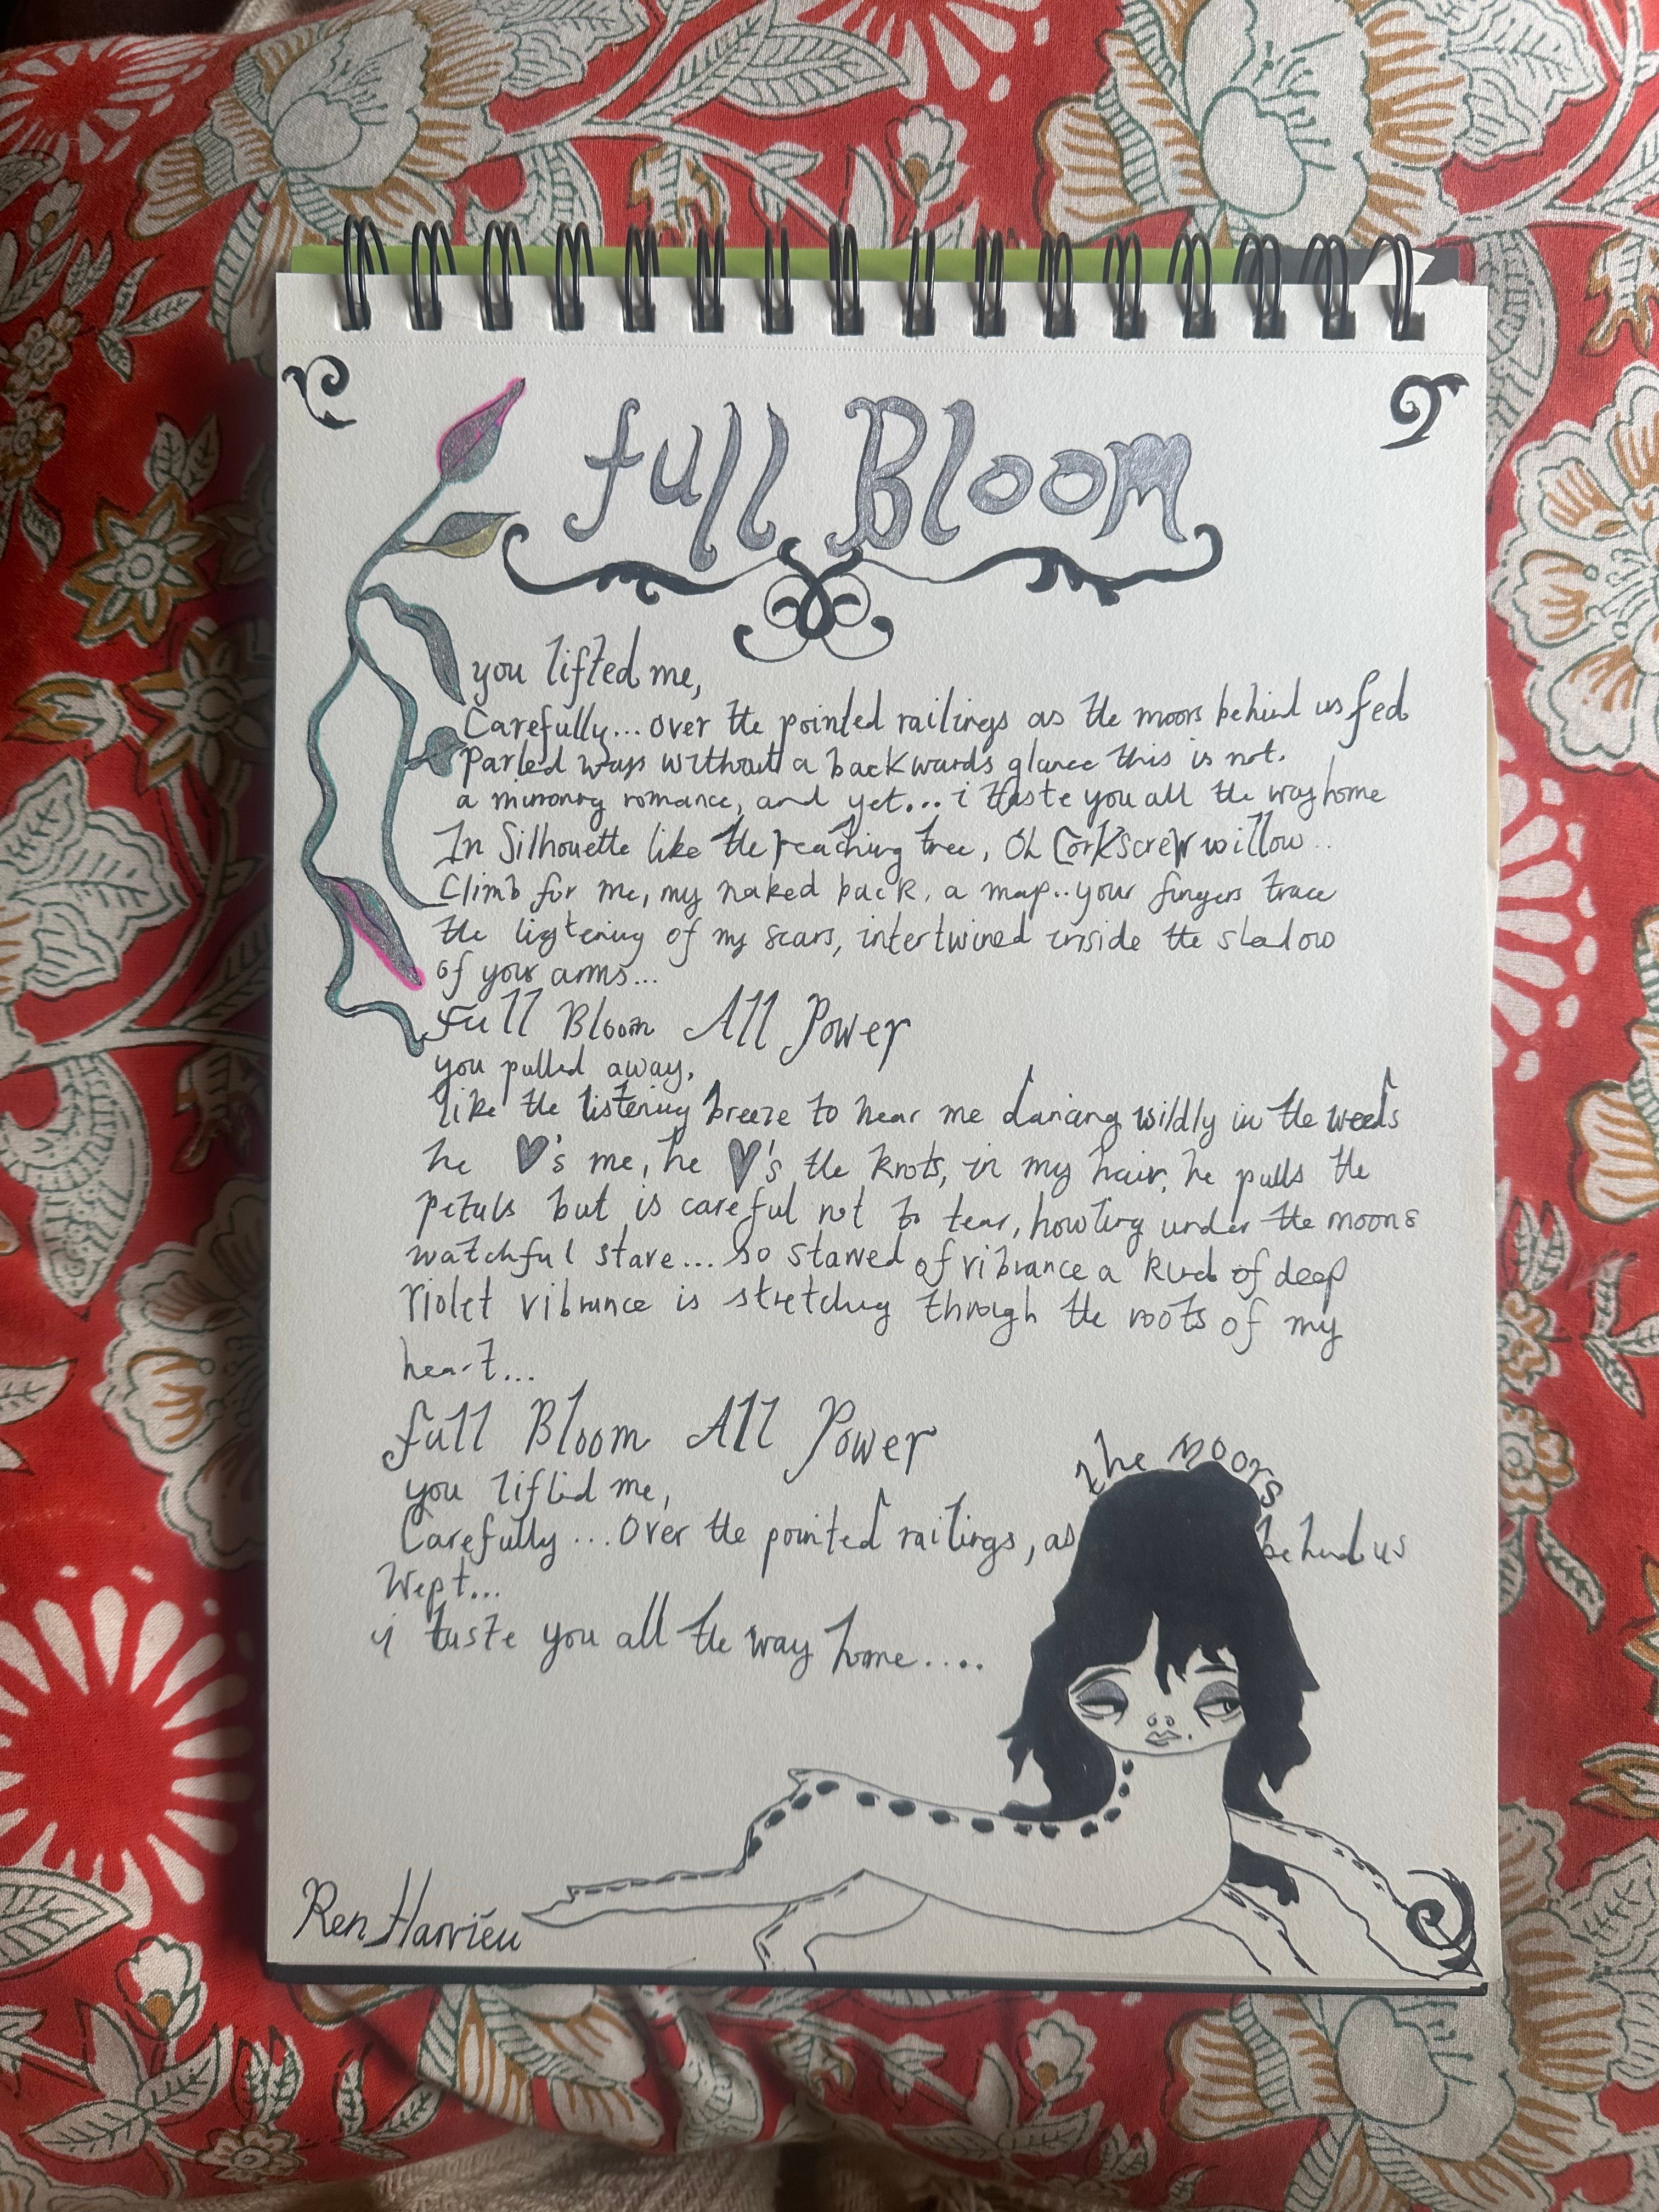 full Bloom
you lifted me,
Carefully... over the pointed railings as the moors behind us fed
Parted ways without a backwards glance this is not.
a romance, and yet... i taste you all the way home
In Silhouette like the reaching tree, Oh Corkscrew willow..
Climb for me, my naked back, a map.. your fingers trace
the of my scars, intertwined inside the shadow
of your arms...
Full Bloom All Power
you pulled away,
like the listening breeze to hear me dancing wildly in the weeds
he ♥'s me, he ♥'s the knots, in my hair, he pulls the
petals but is careful not to tear, howling under the moons
watchful stare... so starved of vibrance a kind of deep
violet vibrance is stretching through the roots of my
heart...
full Bloom All Power
you lifted me,
Carefully... Over the pointed railings, as the Moors behind us
Wept...
i taste you all the way home....
Ren Harvieu